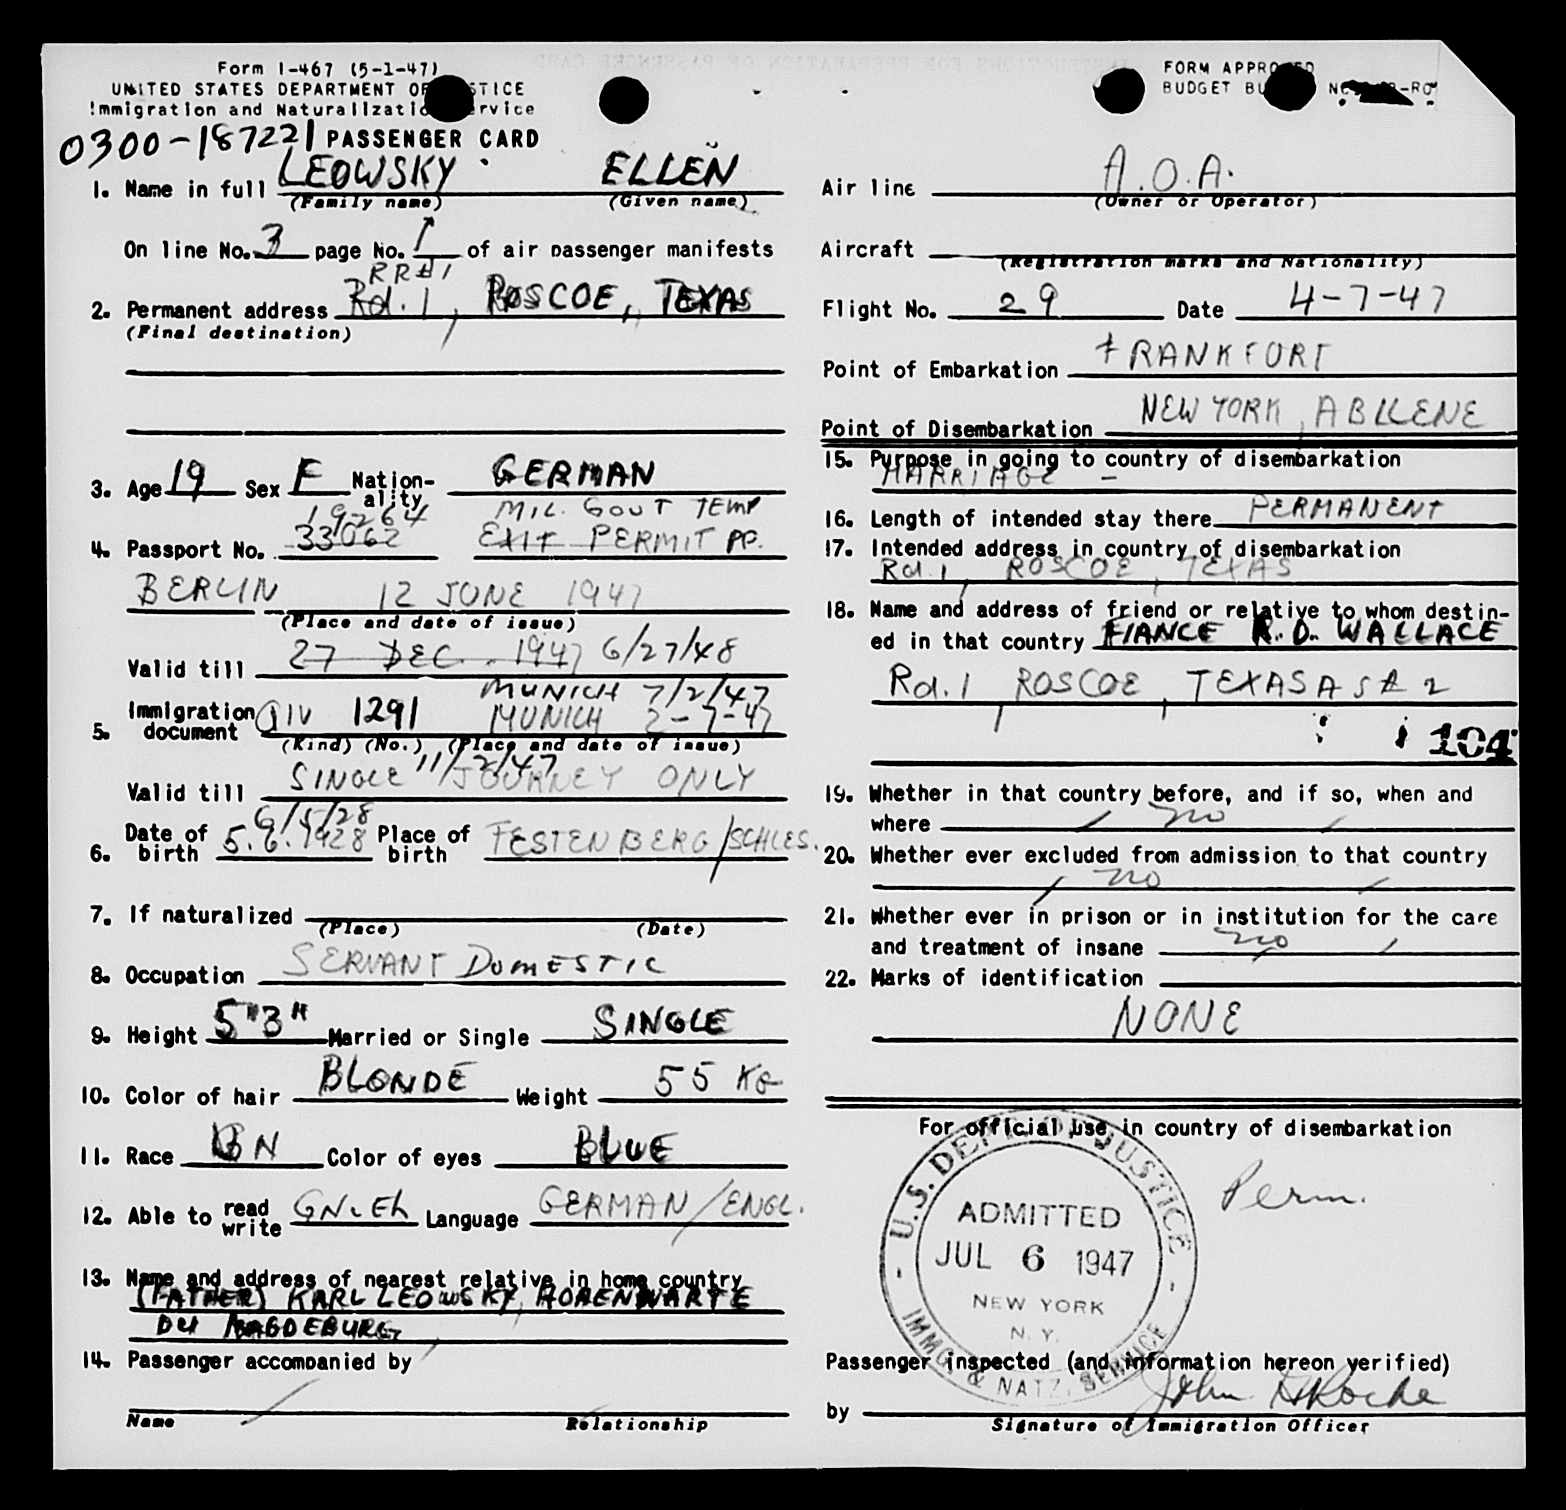 Form I-467 (5-1-47)
UNITED STATES DEPARTMENT OF JUSTICE
Immigration and Naturalization Service
0300-187221 PASSENGER CARD
1. Name in full LEOWSKY ELLEN
(Family name) (Given name)
On line No. 3 page No. 1 of air passenger manifests
RR#1
2. Permanent address Rd. 1, ROSCOE, TEXAS
(Final destination)
3. Age 19 Sex F Nation-ality GERMAN
19264 MIL. GOVT TEMP
4. Passport No. 33062 EXIT PERMIT PP.
BERLIN 12 JUNE 1947
(Place and date of issue)
Valid till 27 DEC. 1947 6/27/48
MUNICH 7/2/47
5. Immigration document QIV 1291 MUNICH 2-7-47
(Kind) (No.) (Place and date of issue)
11/2/47
Valid till SINGLE JOURNEY ONLY
6/5/28
6. Date of birth 5.6.1928 Place of birth FESTENBERG/SCHLES.
7. If naturalized
(Place) (Date)
8. Occupation SERVANT DOMESTIC
9. Height 5"3" Married or Single SINGLE
10. Color of hair BLONDE Weight 55 KG
11. Race Color of eyes BLUE
12. Able to read write Language GERMAN/ENGL.
13. Name and address of nearest relative in home country
(FATHER) KARL LEOWSKY, HOHENWARTE
MAGDEBURG
14. Passenger accompanied by
Name Relationship
FORM APPROVED
BUDGET
Air line A.O.A.
(Owner or Operator)
Aircraft
(Registration marks and Nationality)
Flight No. 29 Date 4-7-47
Point of Embarkation FRANKFURT
Point of Disembarkation NEW YORK, ABILENE
15. Purpose in going to country of disembarkation
MARRIAGE -
16. Length of intended stay there PERMANENT
17. Intended address in country of disembarkation
Rd. 1, ROSCOE, TEXAS
18. Name and address of friend or relative to whom destin-
ed in that country FIANCE R.D. WALLACE
Rd. 1 ROSCOE, TEXAS
104
19. Whether in that country before, and if so, when and
where no
20. Whether ever excluded from admission to that country
no
21. Whether ever in prison or in institution for the care
and treatment of insane no
22. Marks of identification
NONE
For official use in country of disembarkation
Perm.
U.S. DEPT. OF JUSTICE
ADMITTED
JUL 6 1947
NEW YORK
N.Y.
IMMG. & NATZ. SERVICE
Passenger inspected (and information hereon verified)
by John
Signature of Immigration Officer